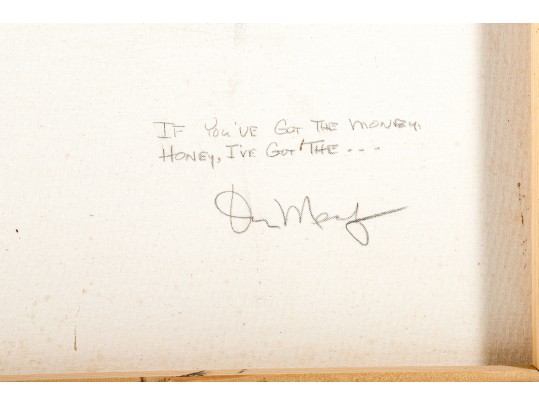 IF YOU'VE GOT THE MONEY,
HONEY, I'VE GOT THE ...